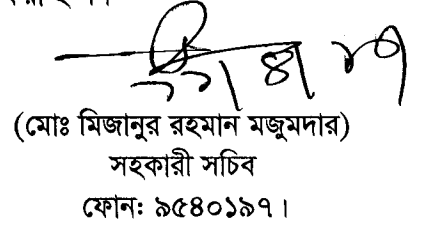 (মোঃ মিজানুর রহমান মজুমদার)
সহকারী সচিব
ফোনঃ ৯৫৪০১৯৭।